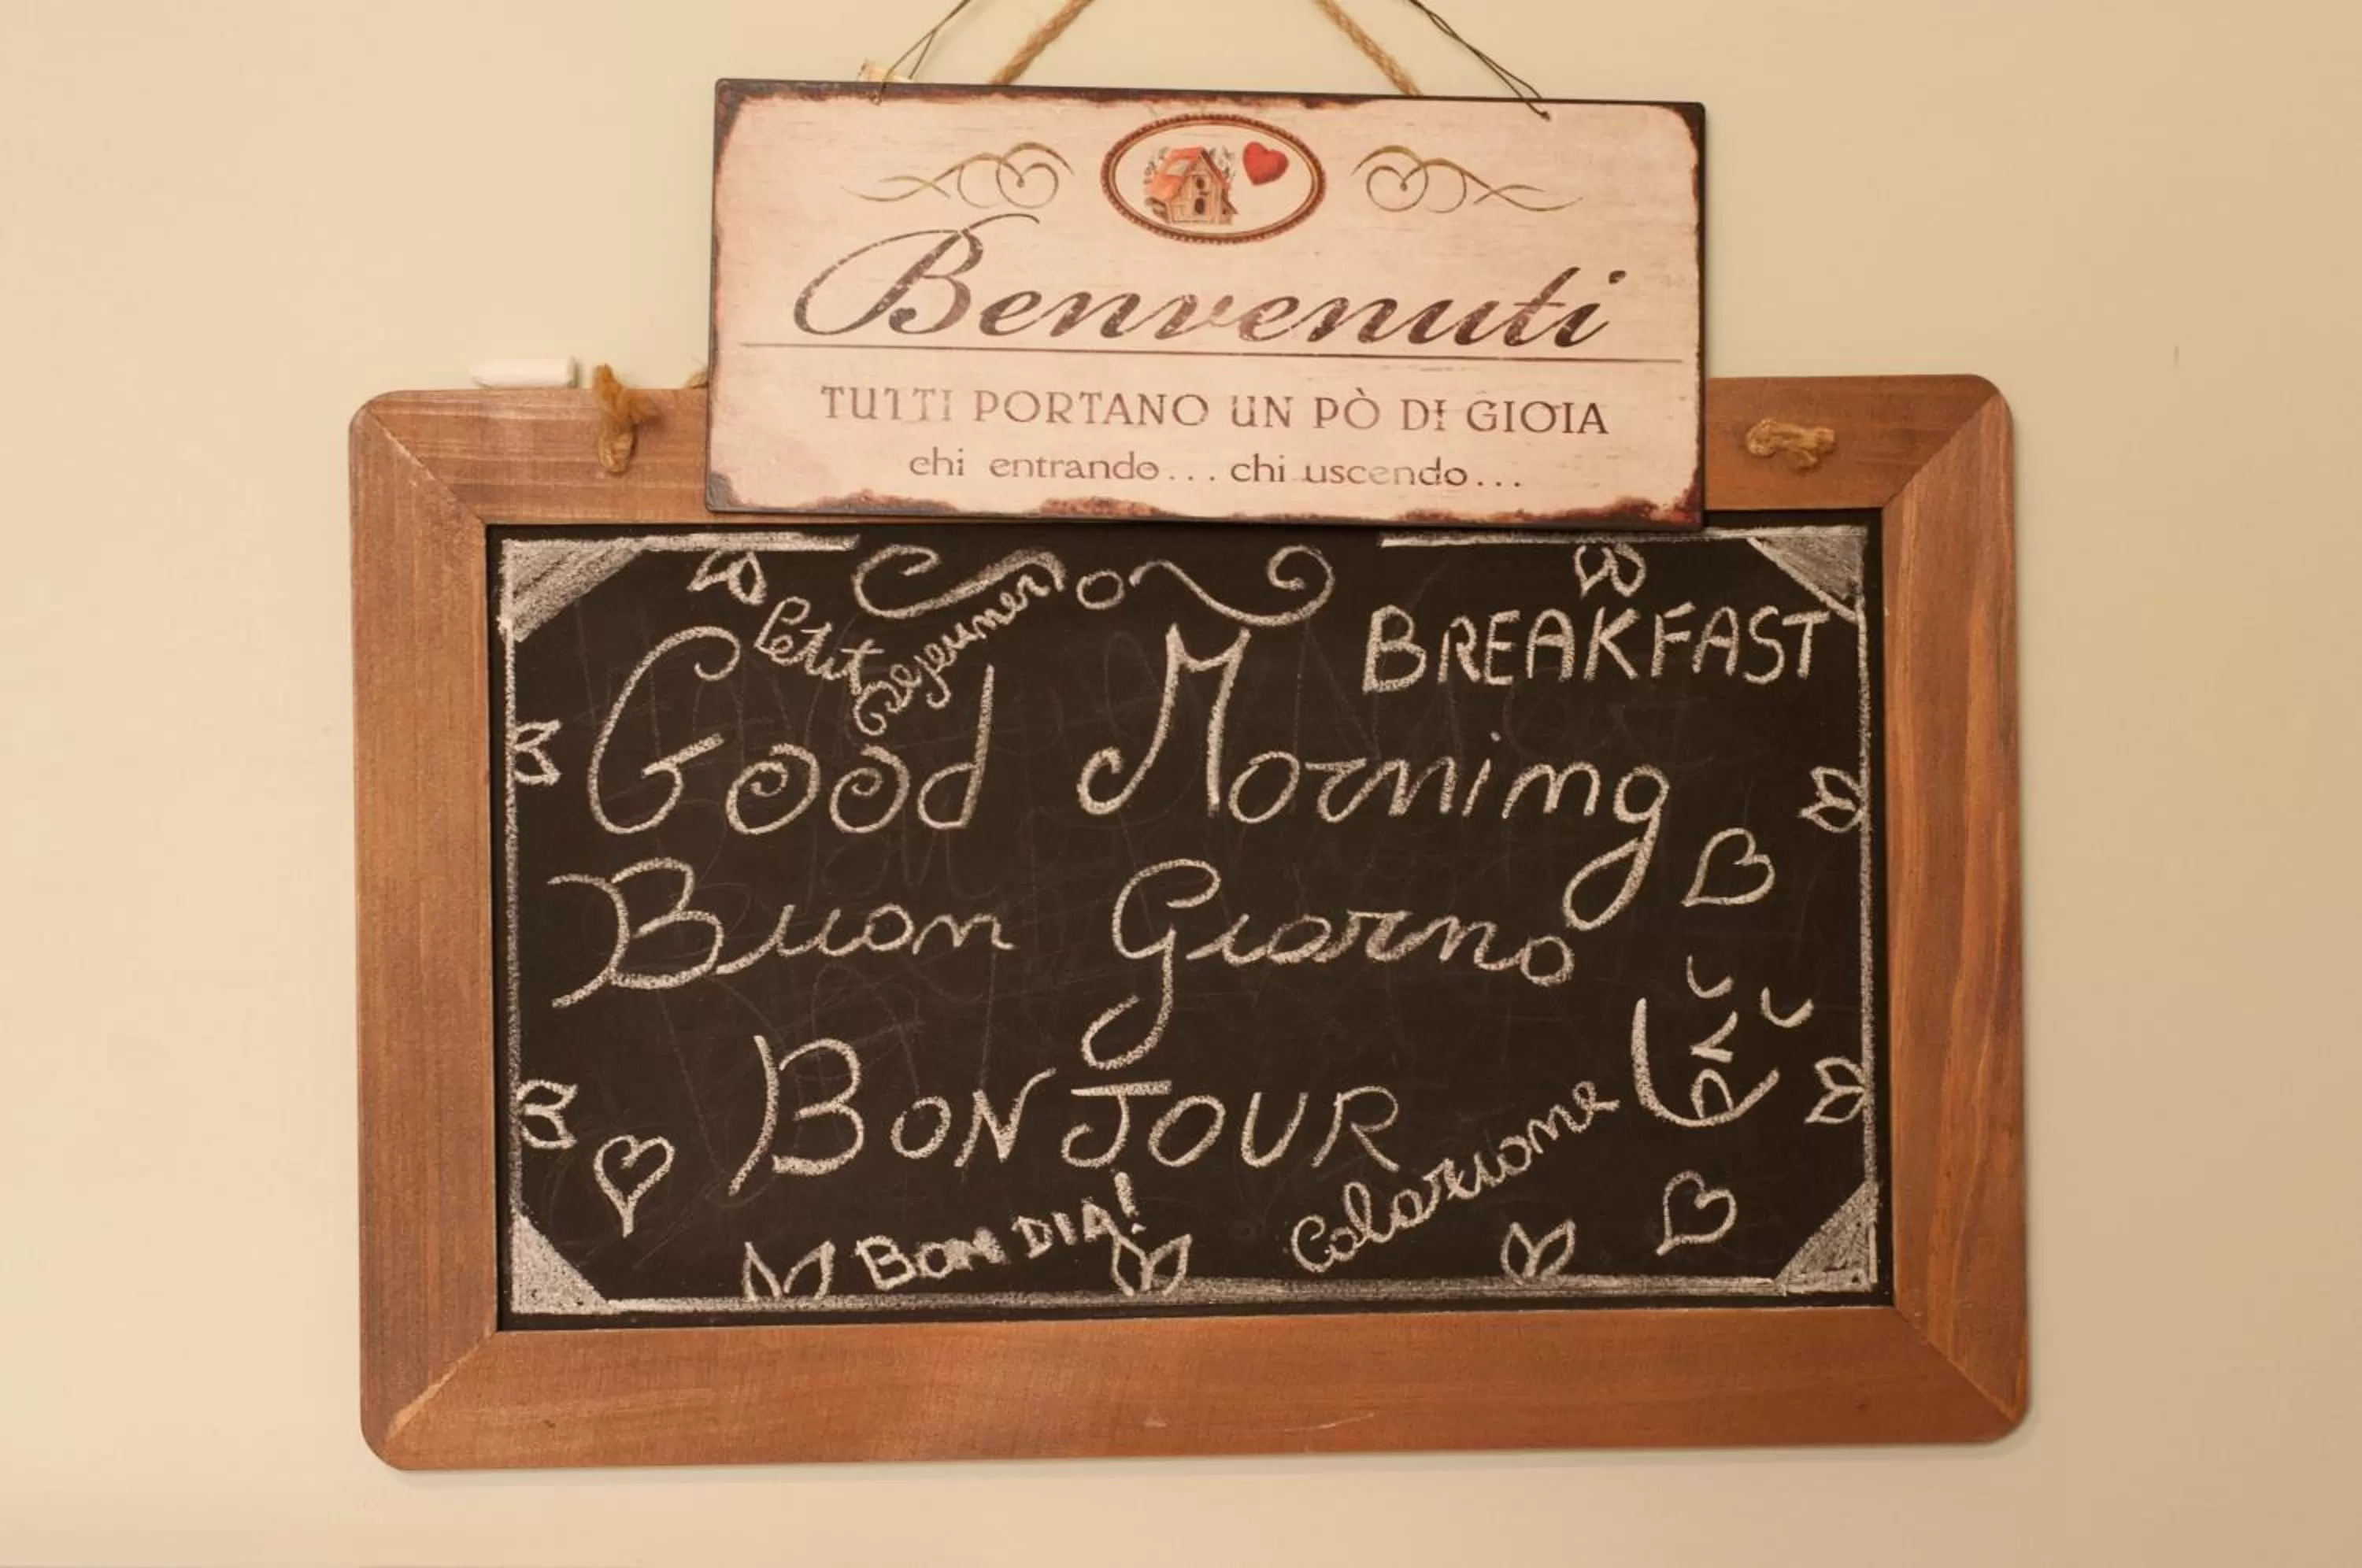 Benvenuti
TUTTI PORTANO UN PÒ DI GIOIA
chi entrando... chi uscendo...
Petit
dejeuner
BREAKFAST
Good Morning
Buon Giorno
BONJOUR
Colazione
BOM DIA!